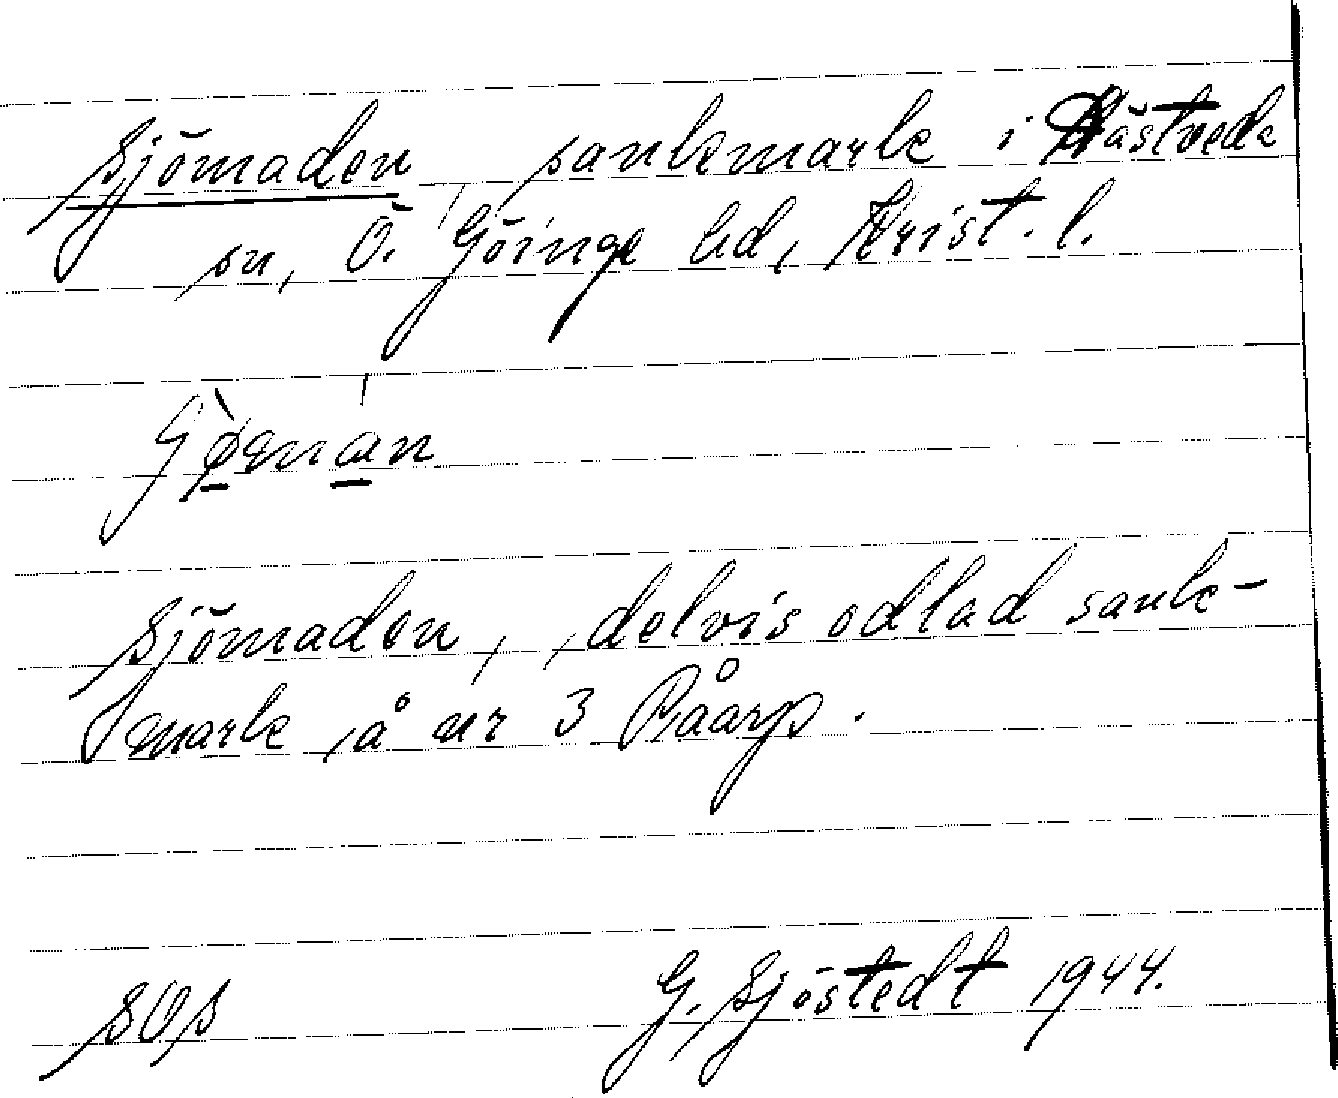 Sjömaden, sankmark i Hästveda
sn, Ö. Göinge hd, Krist. l.
Sjömaden, delvis odlad sank-
mark å nr 3 Råarp.
SOS G. Sjöstedt 1944.